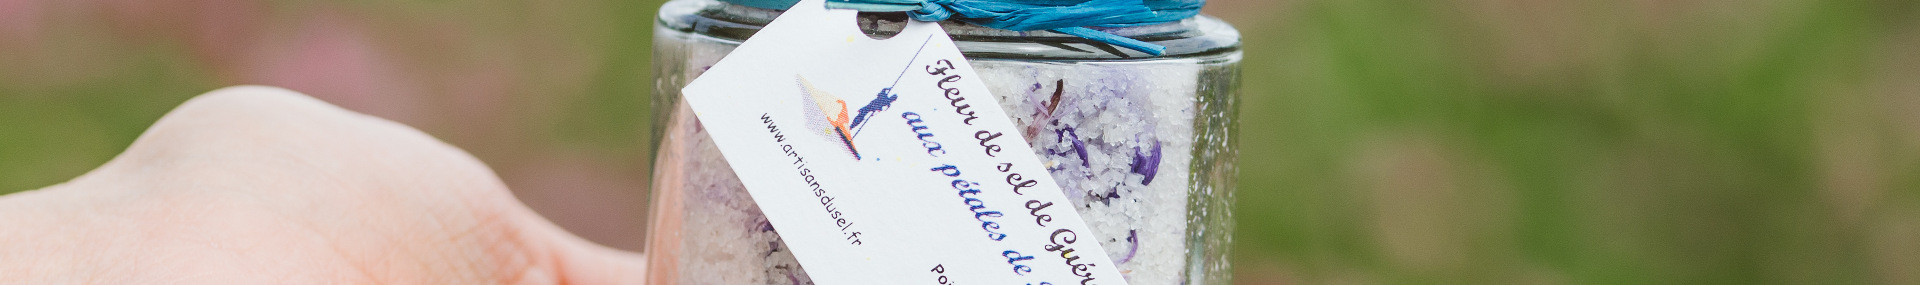 Fleur de sel de
aux pétales de
www.artisansdusel.fr